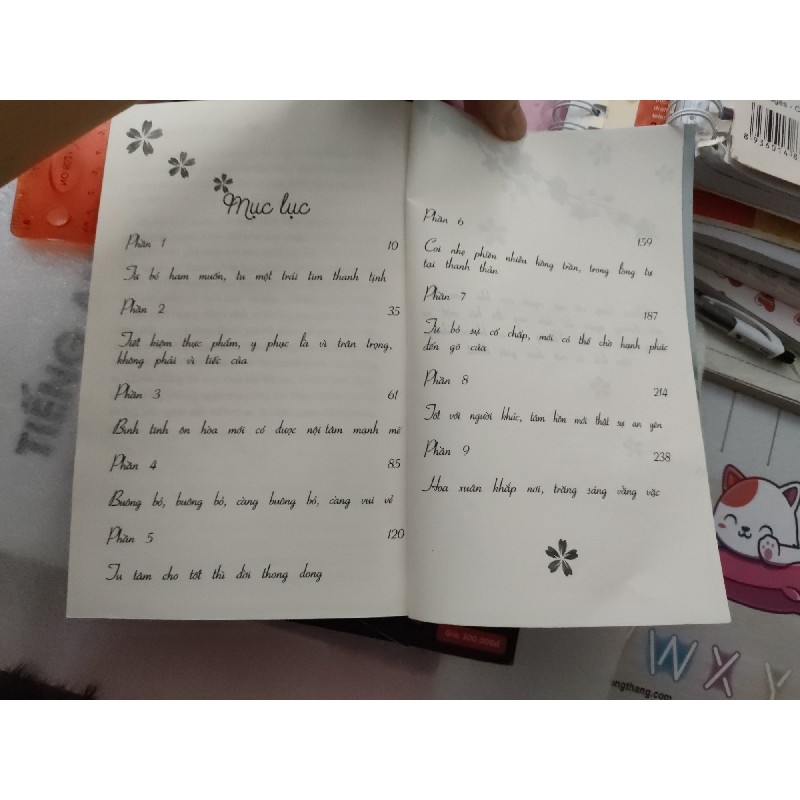 Mục lục
Phần 1 10
Từ bỏ ham muốn, tu một trái tim thanh tịnh
Phần 2 35
Tiết kiệm thực phẩm, y phục là vì trân trọng,
không phải vì tiếc của
Phần 3 61
Bình tĩnh ôn hòa mới có được nội tâm mạnh mẽ
Phần 4 85
Buông bỏ, buông bỏ, càng buông bỏ, càng vui vẻ
Phần 5 120
Tu tâm cho tốt thì đời thong dong
Phần 6
159
Coi nhẹ phiền nhiễu hồng trần, trong lòng tự
tại thanh thản
Phần 7
187
Từ bỏ sự cố chấp, mới có thể chờ hạnh phúc
đến gõ cửa
Phần 8
214
Tốt với người khác, tâm hồn mới thật sự an yên
Phần 9
238
Hoa xuân khắp nơi, trăng sáng vằng vặc
TIẾNG
Giá: 300.000đ
W X Y
ngthang.com
8 936014 18